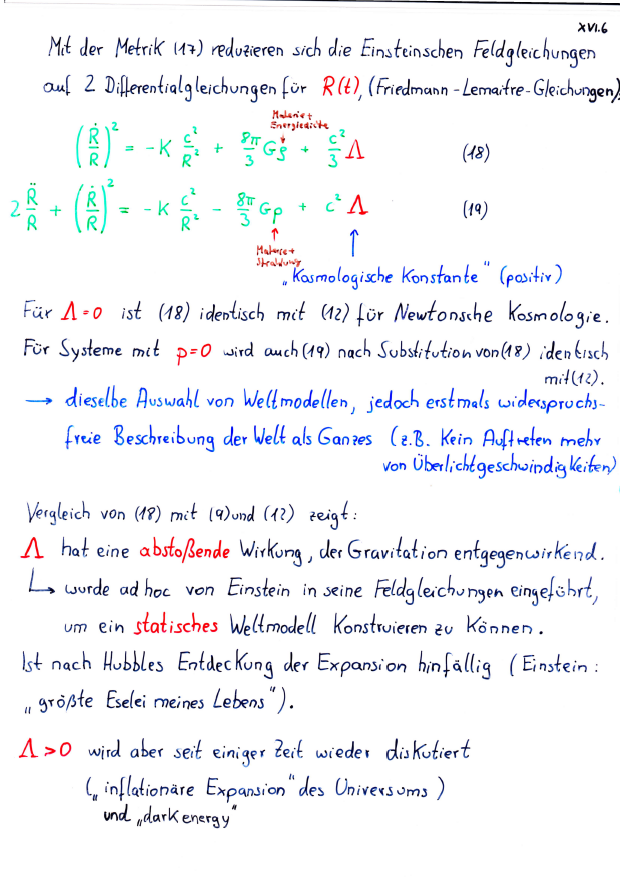 XVI.6
Mit der Metrik (17) reduzieren sich die Einsteinschen Feldgleichungen
auf 2 Differentialgleichungen für R(t), (Friedmann-Lemaitre-Gleichungen).
Materie+
Energiedichte
(Ṙ/R)² = -K c²/R² + 8π/3 Gρ + c²/3 Λ (18)
2 R̈/R + (Ṙ/R)² = -K c²/R² - 8π/3 Gp + c² Λ (19)
Materie+
Strahlung
„Kosmologische Konstante" (positiv)
Für Λ=0 ist (18) identisch mit (12) für Newtonsche Kosmologie.
Für Systeme mit p=0 wird auch (19) nach Substitution von (18) identisch
mit (12).
→ dieselbe Auswahl von Weltmodellen, jedoch erstmals widerspruchs-
freie Beschreibung der Welt als Ganzes (z.B. Kein Auftreten mehr
von Überlichtgeschwindigkeiten)
Vergleich von (18) mit (9) und (12) zeigt:
Λ hat eine abstoßende Wirkung, der Gravitation entgegenwirkend.
↳ wurde ad hoc von Einstein in seine Feldgleichungen eingeführt,
um ein statisches Weltmodell Konstruieren zu Können.
Ist nach Hubbles Entdeckung der Expansion hinfällig (Einstein:
„größte Eselei meines Lebens").
Λ>0 wird aber seit einiger Zeit wieder diskutiert
(„inflationäre Expansion" des Universums)
und „dark energy"